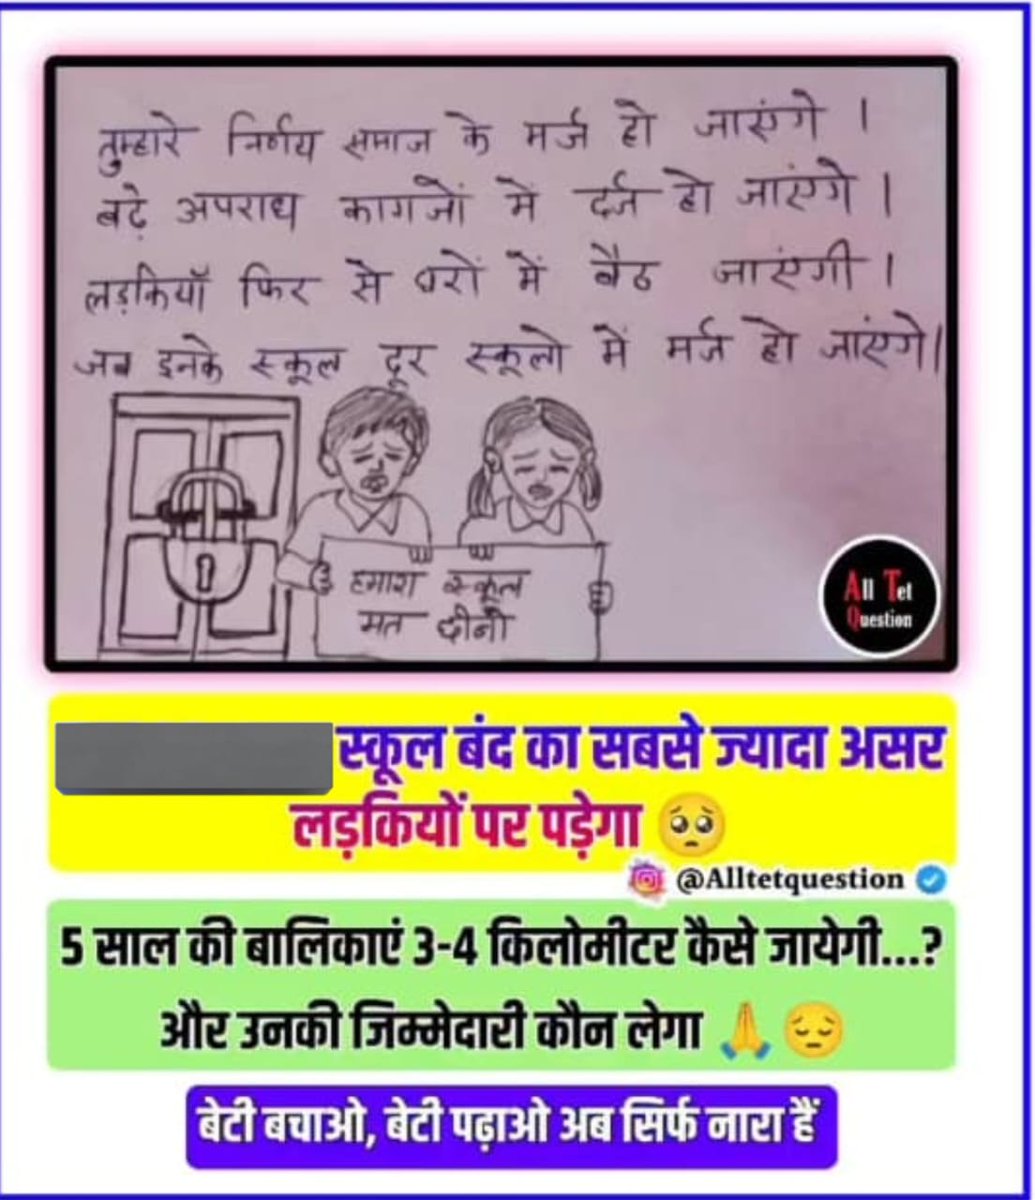 तुम्हारे निर्णय समाज के मर्ज हो जाएंगे ।
बढ़े अपराध कागजों में दर्ज हो जाएंगे ।
लड़कियाँ फिर से घरों में बैठ जाएंगी ।
जब इनके स्कूल दूर स्कूलो में मर्ज हो जांएगे।
हमारा स्कूल
मत छीनो
All Tet
Question
स्कूल बंद का सबसे ज्यादा असर
लड़कियों पर पड़ेगा 🥺
@Alltetquestion
5 साल की बालिकाएं 3-4 किलोमीटर कैसे जायेगी...?
और उनकी जिम्मेदारी कौन लेगा 🙏😔
बेटी बचाओ, बेटी पढ़ाओ अब सिर्फ नारा हैं